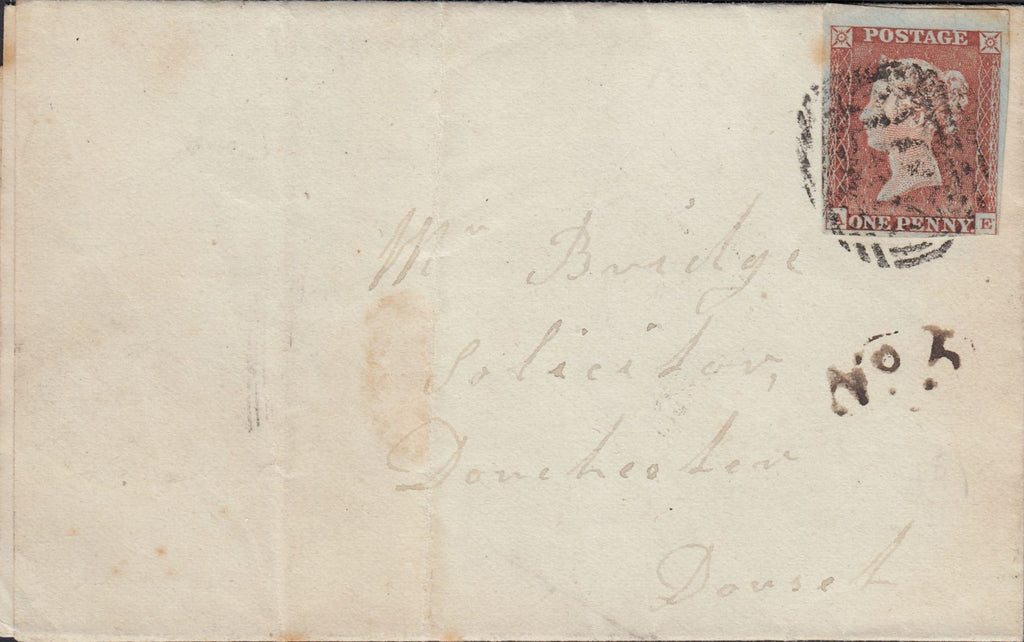 POSTAGE
ONE PENNY
A E
Mr Bridge
Solicitor,
No. 5
Dorchester
Dorset